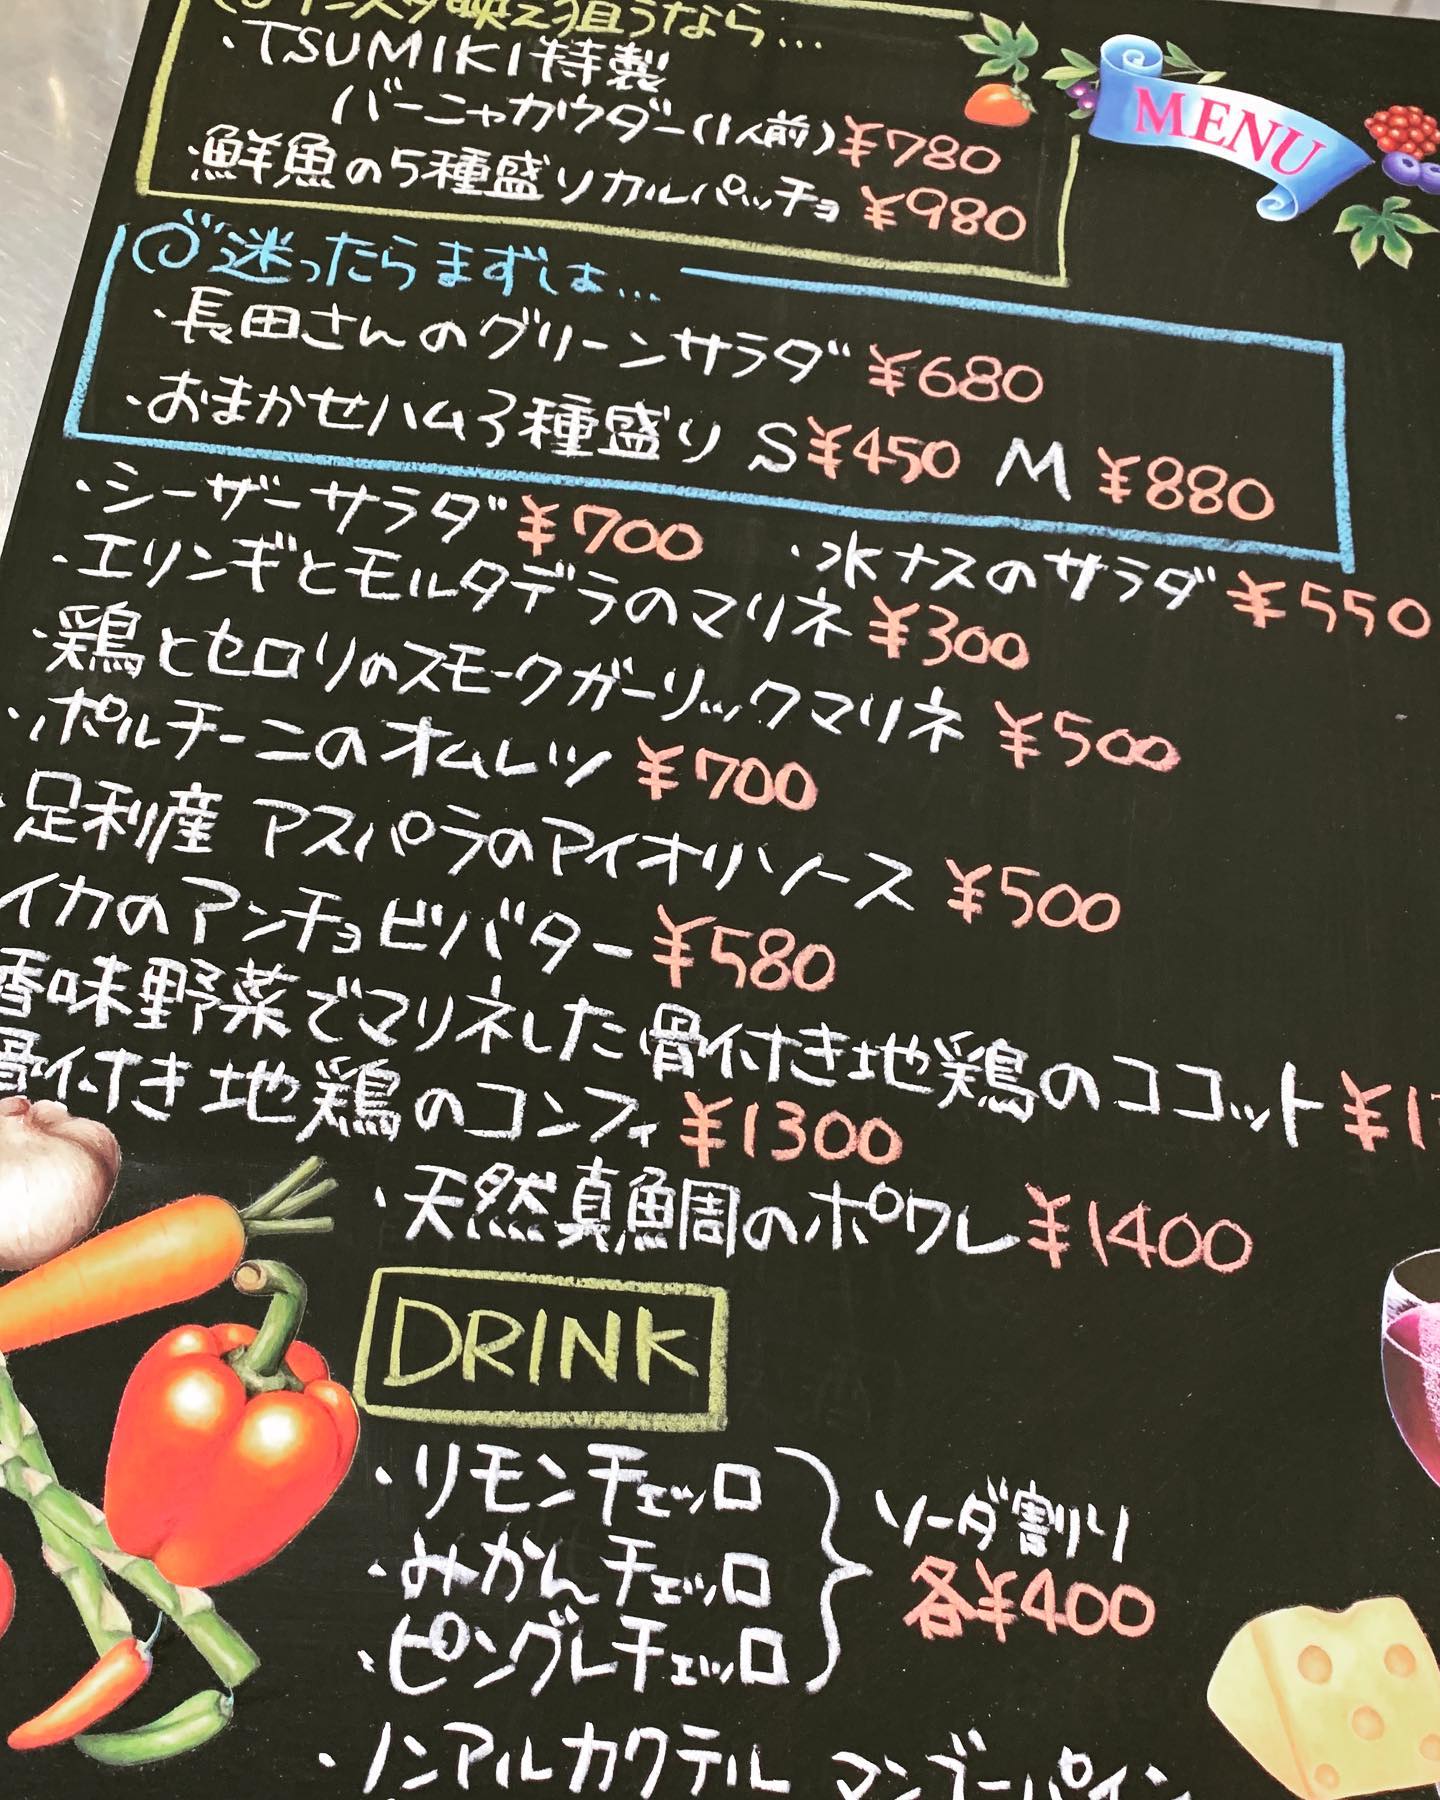 インスタ映え狙うなら…
・TSUMIKI特製
バーニャカウダー(1人前)¥780
・鮮魚の5種盛りカルパッチョ ¥980
MENU
迷ったらまずしょ…
・長田さんのグリーンサラダ ¥680
・おまかせハム3種盛り S¥450 M ¥880
・シーザーサラダ ¥700 ・水ナスのサラダ ¥550
・エリンギとモルタデラのマリネ ¥300
・鶏とセロリのスモークガーリックマリネ ¥500
・ポルチーニのオムレツ ¥700
・足利産 アスパラのアイオリソース ¥500
イカのアンチョビバター ¥580
香味野菜でマリネした骨付き地鶏のココット
骨付き地鶏のコンフィ ¥1300
・天然真鯛のポワレ ¥1400
DRINK
・リモンチェッロ
・みかんチェッロ
・ピングレチェッロ
ソーダ割り
各¥400
・ノンアルカクテル マンゴーパイン